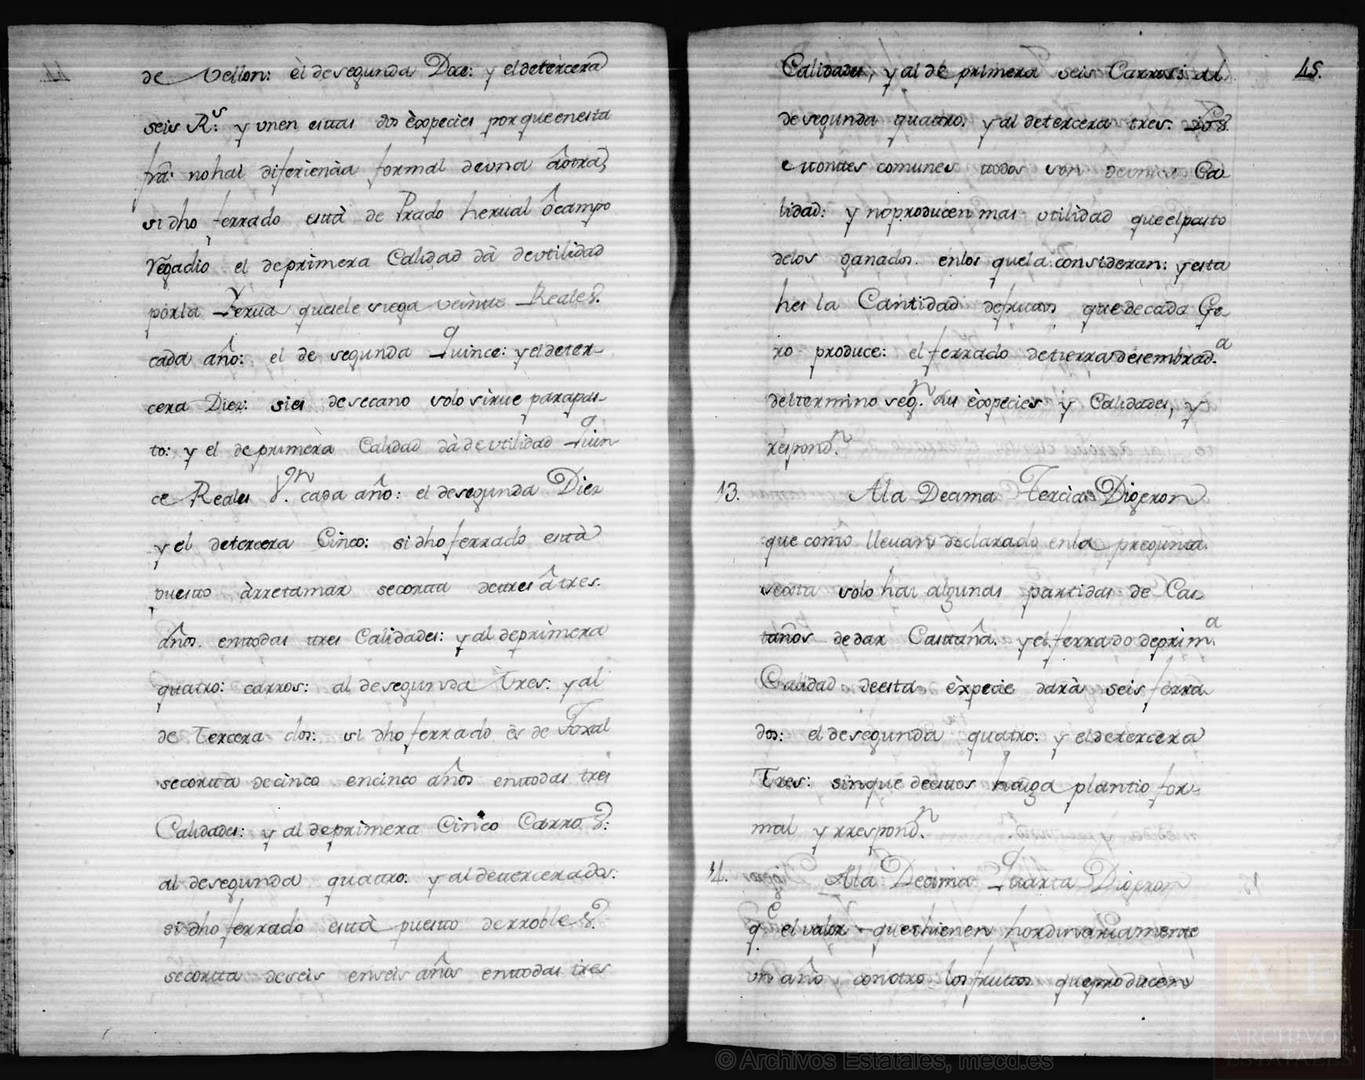 de Vellon: èl de segunda Doce: y el de tercera
seis R.s y unen estas dos èspecies por que en esta
fra. no hai diferienzia formal de una âotra,
si dho ferrado està de Prado herval ô campo
Regadio el de primera Calidad dà de utilidad
por la Yerua que se le siega veinte Reales.
cada año: el de segunda Quince: y el de ter-
cera Diez: si es de secano solo sirue para pas-
to: y el de primèra Calidad dà de utilidad Quin
ce Reales V.n cada año: el de segunda Diez
y el de tercera Cinco: si dho ferrado està
puesto àrretamar se corta de tres â tres.
años. en todas tres Calidades: y al de primera
quatro: carros: al de segunda Tres: y al
de Tercera dos: si dho ferrado ès de Toxal
se corta de cinco en cinco años en todas tres
Calidades: y al de primera Cinco Carros:
al de segunda quatro: y al de tercera dos:
si dho ferrado està puesto de rrobles.
se corta de seis en seis años en todas tres
45.
Calidades, y al de primera seis Carros: al
de segunda quatro. y al de tercera tres. Los
montes comunes todos son de unica Ca-
lidad: y no producen mas utilidad que el pasto
de los ganados. en los que la consideran: y esta
hes la Cantidad de frutos que de cada Ge-
ro produce: el ferrado de tierra desembrad.a
del termino seg.n sus èspecies y Calidades, y
respond.n
13. Ala Decima Tercia Digeron
que como lleuan declarado en la pregunta
sexta solo hai algunas partidas de Cas-
taños de dar Castaña. y el ferrado de prim.a
Calidad de esta èspecie darà seis ferra-
dos: el de segunda quatro: y el de tercera
Tres: sin que de estos haiga plantio for-
mal y rrespond.n
14. Ala Decima Quarta Digeron
q.e el valor que thienen hordinariamente
un año con otro los frutos que producen
© Archivos Estatales, mecd.es
ARCHIVOS
ESTATALES